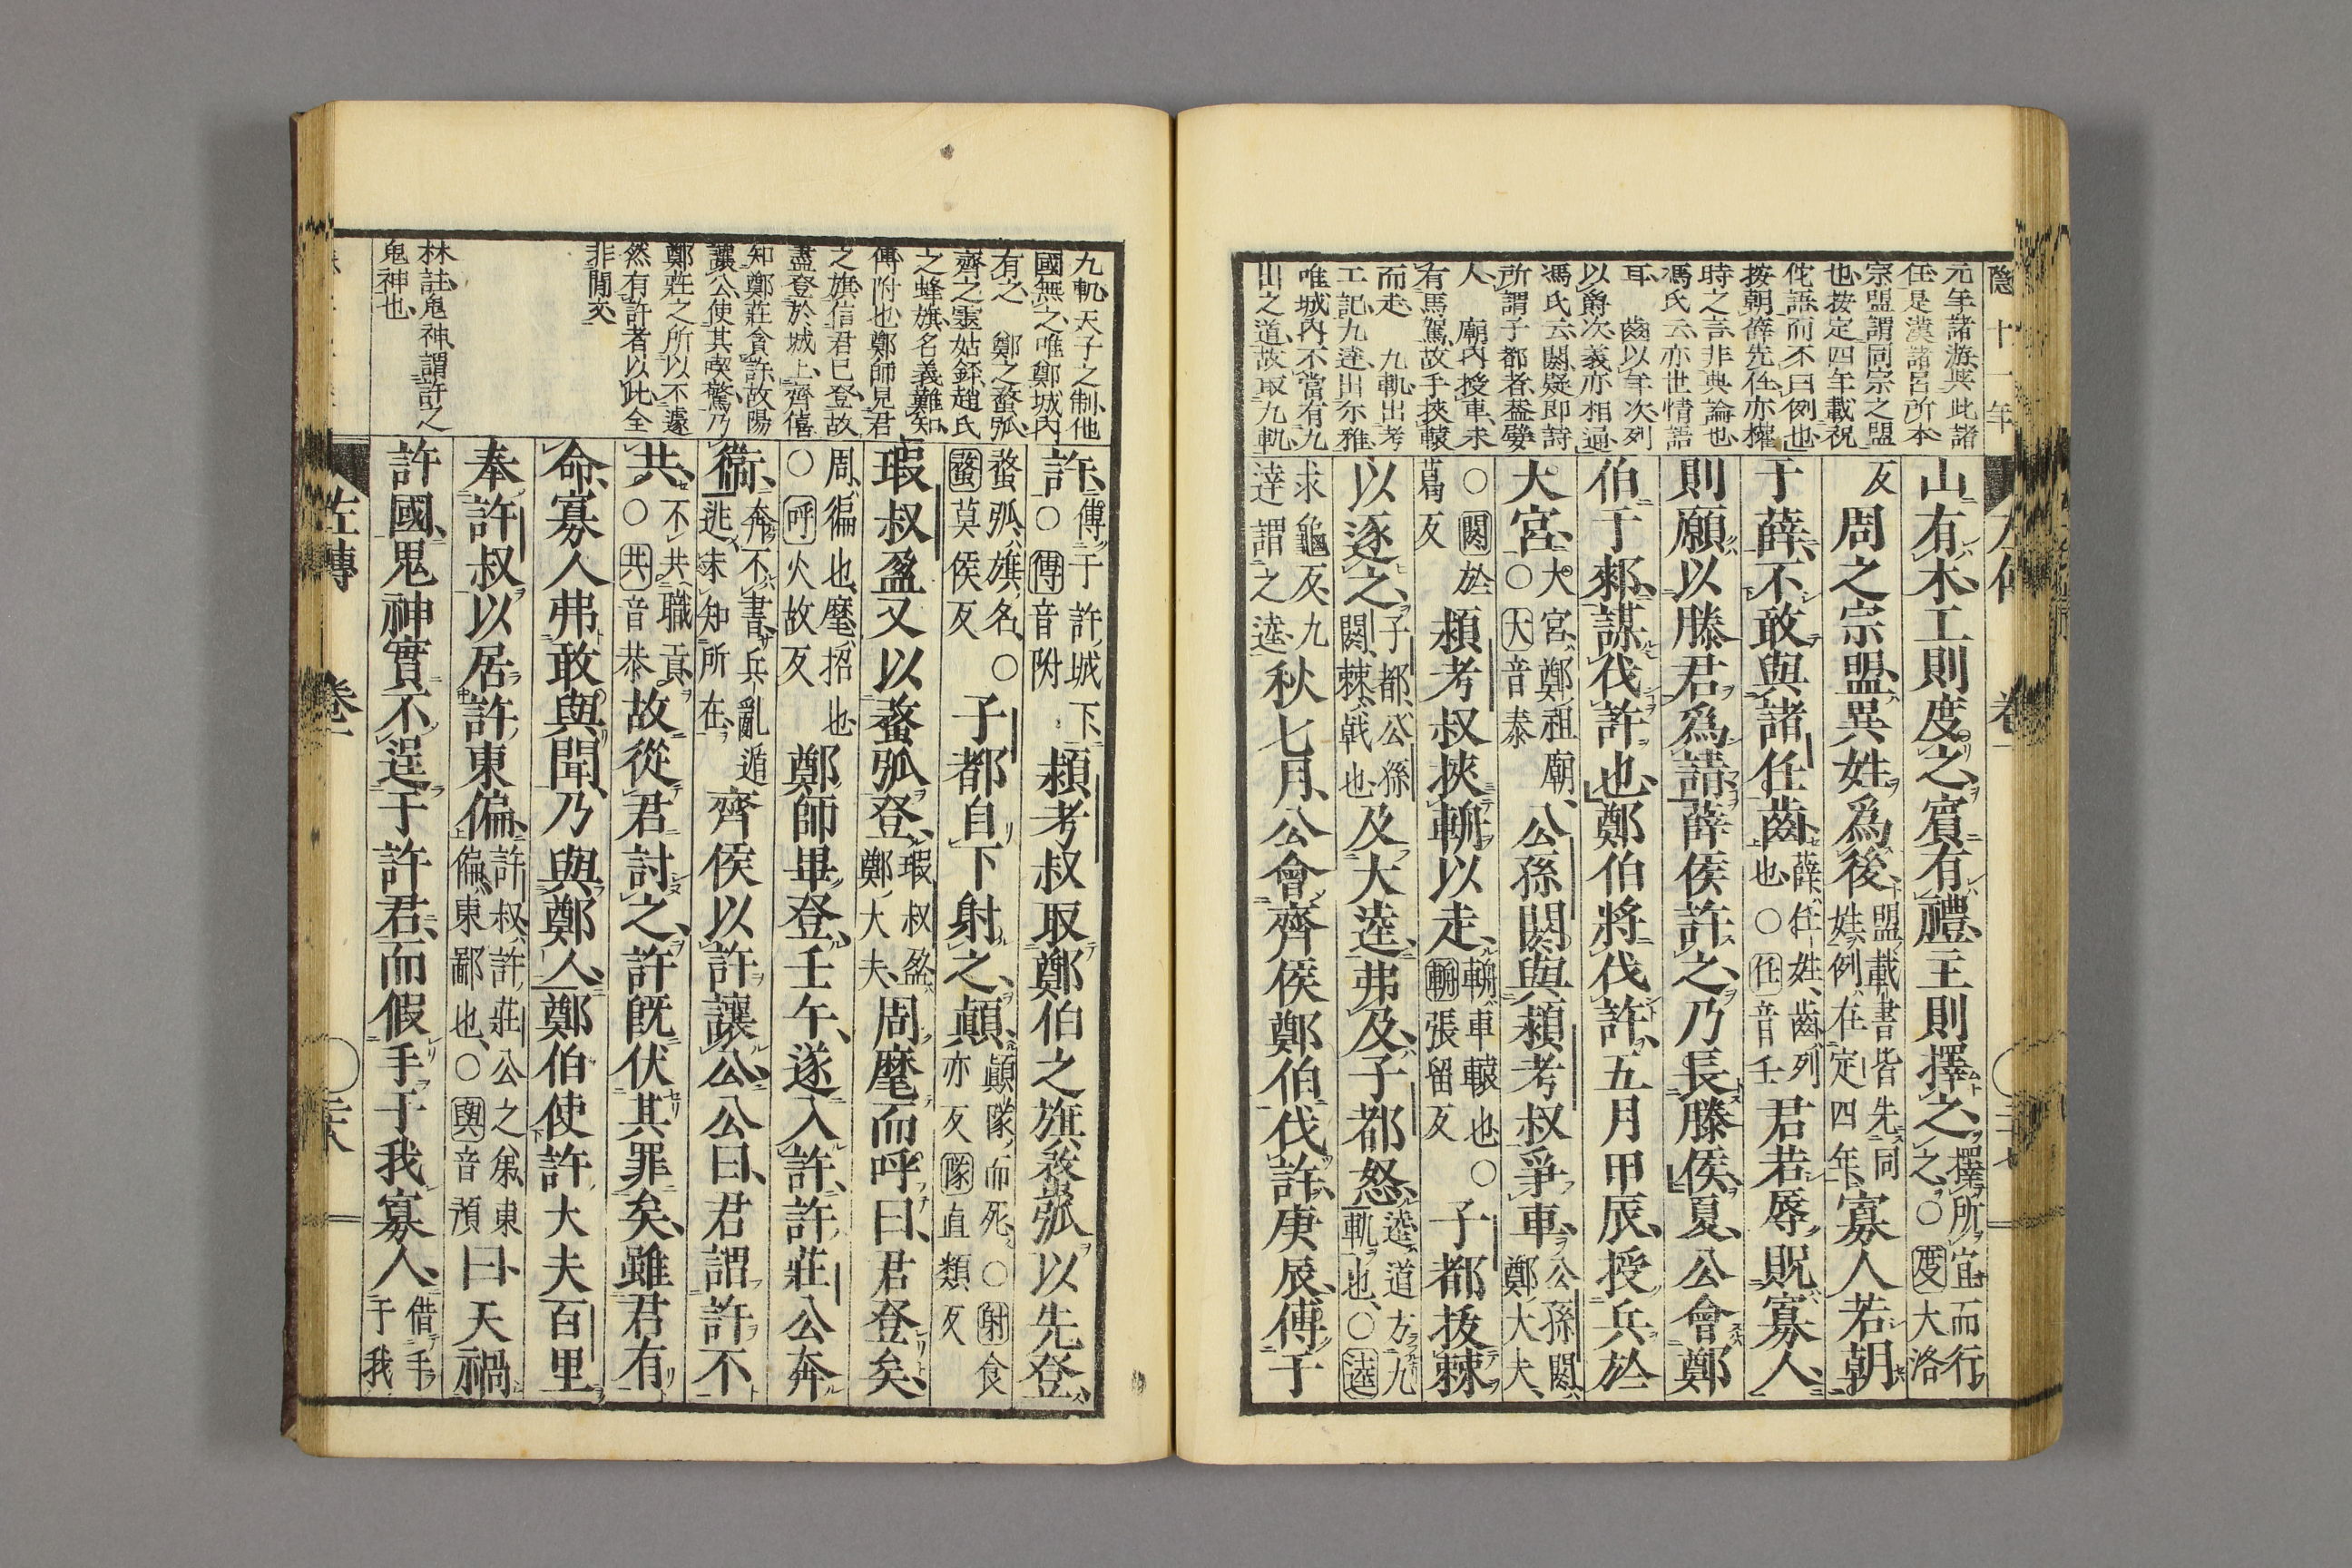 隱十一年
元年諸游與此諸
任是漢諸呂所本
宗盟謂同宗之盟
也按定四年載祝
佗語而不曰例也
按朝薛先任亦權
時之言非典論也
馮氏云亦世情語
耳 齒以年次列
以爵次義亦相通
馮氏云閼疑即詩
所謂子都者蓋嬖
人 廟内授車未
有馬駕故手挾轅
而走 九軌出考
工記九逵出尓雅
唯城内不當有九
出之道故取九軌
山有木工則度之賓有禮主則擇之擇所宜而行之○度大洛
反周之宗盟異姓爲後盟載書皆先同姓例在定四年寡人若朝
于薛不敢與諸任齒薛任姓齒列也○任音壬君若辱貺寡人
則願以滕君爲請薛侯許之乃長滕侯夏公會鄭
伯于郲謀伐許也鄭伯將伐許五月甲辰授兵於
大宮大宮鄭祖廟○大音泰公孫閼與潁考叔爭車公孫閼鄭大夫
○閼於葛反潁考叔挾輈以走輈車轅也○輈張留反子都拔棘
以逐之子都公孫閼棘戟也及大逵弗及子都怒逵道方九軌也○逵
求龜反九達謂之逵秋七月公會齊侯鄭伯伐許庚辰傅于
九軌天子之制他
國無之唯鄭城内
有之 鄭之蝥弧
齊之靈姑銔趙氏
之蜂旗名義難知
傅附也鄭師見君
之旗信君已登故
盡登於城上齊僖
知鄭莊貪許故陽
讓公使其喫驚乃
鄭莊之所以不遽
然有許者以此全
非閒交
林註鬼神謂許之
鬼神也
許傅于許城下○傅音附潁考叔取鄭伯之旗蝥弧以先登
蝥弧旗名○蝥莫侯反子都自下射之顚顚隊而死○射食亦反隊直類反
瑕叔盈又以蝥弧登瑕叔盈鄭大夫周麾而呼曰君登矣
周徧也麾招也○呼火故反鄭師畢登壬午遂入許許莊公奔
衞奔不書兵亂遁逃未知所在齊侯以許讓公公曰君謂許不
共不共職貢○共音恭故從君討之許旣伏其罪矣雖君有
命寡人弗敢與聞乃與鄭人鄭伯使許大夫百里
奉許叔以居許東偏許叔許莊公之弟東偏東鄙也○與音預曰天禍
許國鬼神實不逞于許君而假手于我寡人借手于我
左傳 卷一